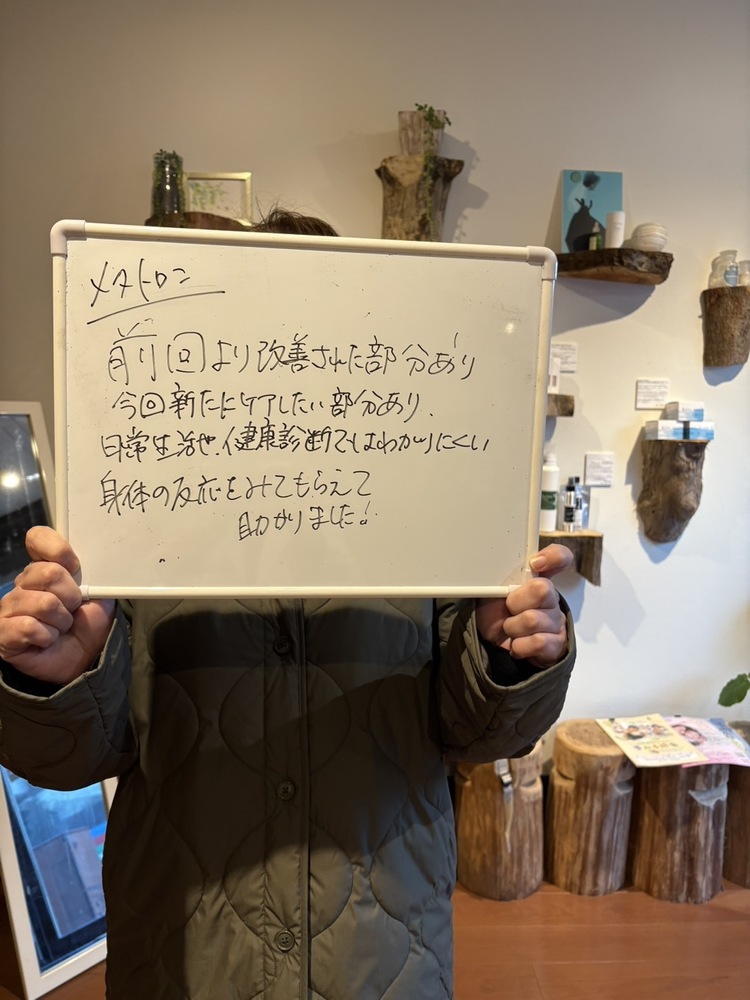 メタトロン
前回より改善された部分あり
今回新たにケアしたい部分あり、
日常生活や、健康診断ではわかりにくい
身体の反応をみてもらえて
助かりました!